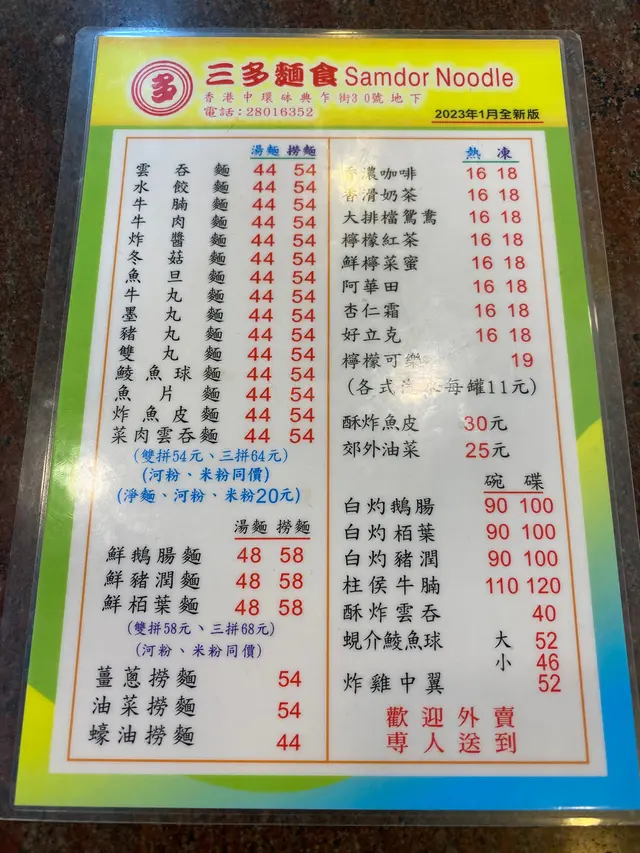 多
三多麵食 Samdor Noodle
香港中環砵典乍街30號地下
電話：28016352
2023年1月全新版
湯麵 撈麵
雲吞麵 44 54
水餃麵 44 54
牛腩麵 44 54
牛肉麵 44 54
炸醬麵 44 54
冬菇麵 44 54
魚旦麵 44 54
牛丸麵 44 54
墨丸麵 44 54
豬丸麵 44 54
雙丸麵 44 54
鯪魚球麵 44 54
魚片麵 44 54
炸魚皮麵 44 54
菜肉雲吞麵 44 54
(雙拼54元、三拼64元)
(河粉、米粉同價)
(淨麵、河粉、米粉20元)
湯麵 撈麵
鮮鵝腸麵 48 58
鮮豬潤麵 48 58
鮮栢葉麵 48 58
(雙拼58元、三拼68元)
(河粉、米粉同價)
薑蔥撈麵 54
油菜撈麵 54
蠔油撈麵 44
熱 凍
香濃咖啡 16 18
香滑奶茶 16 18
大排檔鴛鴦 16 18
檸檬紅茶 16 18
鮮檸菜蜜 16 18
阿華田 16 18
杏仁霜 16 18
好立克 16 18
檸檬可樂 19
(各式汽水每罐11元)
酥炸魚皮 30元
郊外油菜 25元
碗 碟
白灼鵝腸 90 100
白灼栢葉 90 100
白灼豬潤 90 100
柱侯牛腩 110 120
酥炸雲吞 40
蜆介鯪魚球 大 52
小 46
炸雞中翼 52
歡迎外賣
專人送到